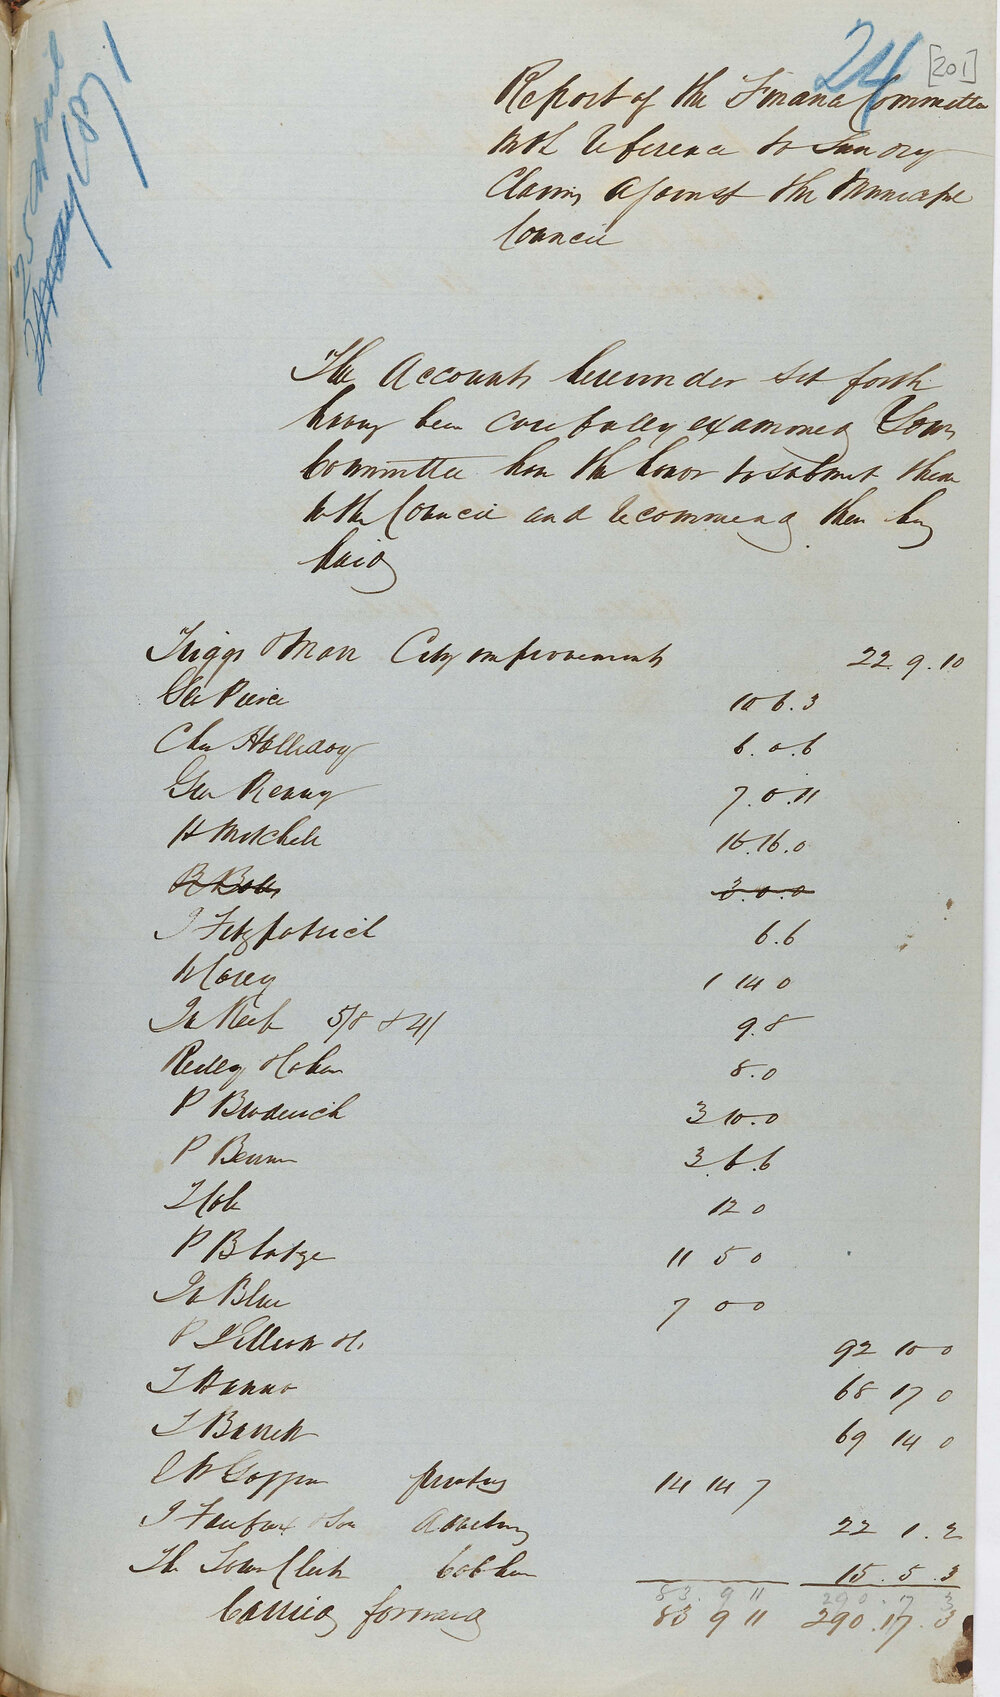 24 [201]
Report of the Finance Committee
with reference to Sundry
Claims against the Municipal
Council
The Accounts hereunder set forth
having been carefully examined Your
Committee have the honor to submit them
to the Council and recommend their being
paid
Triggs & Marr City improvements 22. 9. 10
Geo Pierce 10 6. 3
Chas Holliday 6. 0. 6
Geo Renny 7. 0. 11
H Mitchell 16. 16. 0
3. 0. 0
J Fitzpatrick 6. 6
W Corey 1 14 0
5/8 & 41 9. 8
8. 0
P Broderick 3 10. 0
P 3. 6. 6
12 0
P 11 5 0
Jn Blue 7 0 0
P 92 10 0
T Hanna 68 17 0
T Barrett 69 14 0
printing 14 14 7
J Fairfax & Son 22 1. 2
The Town Clerk 15. 5. 3
83. 9 11 290. 17. 3
Carried forward 83 9 11 290. 17. 3